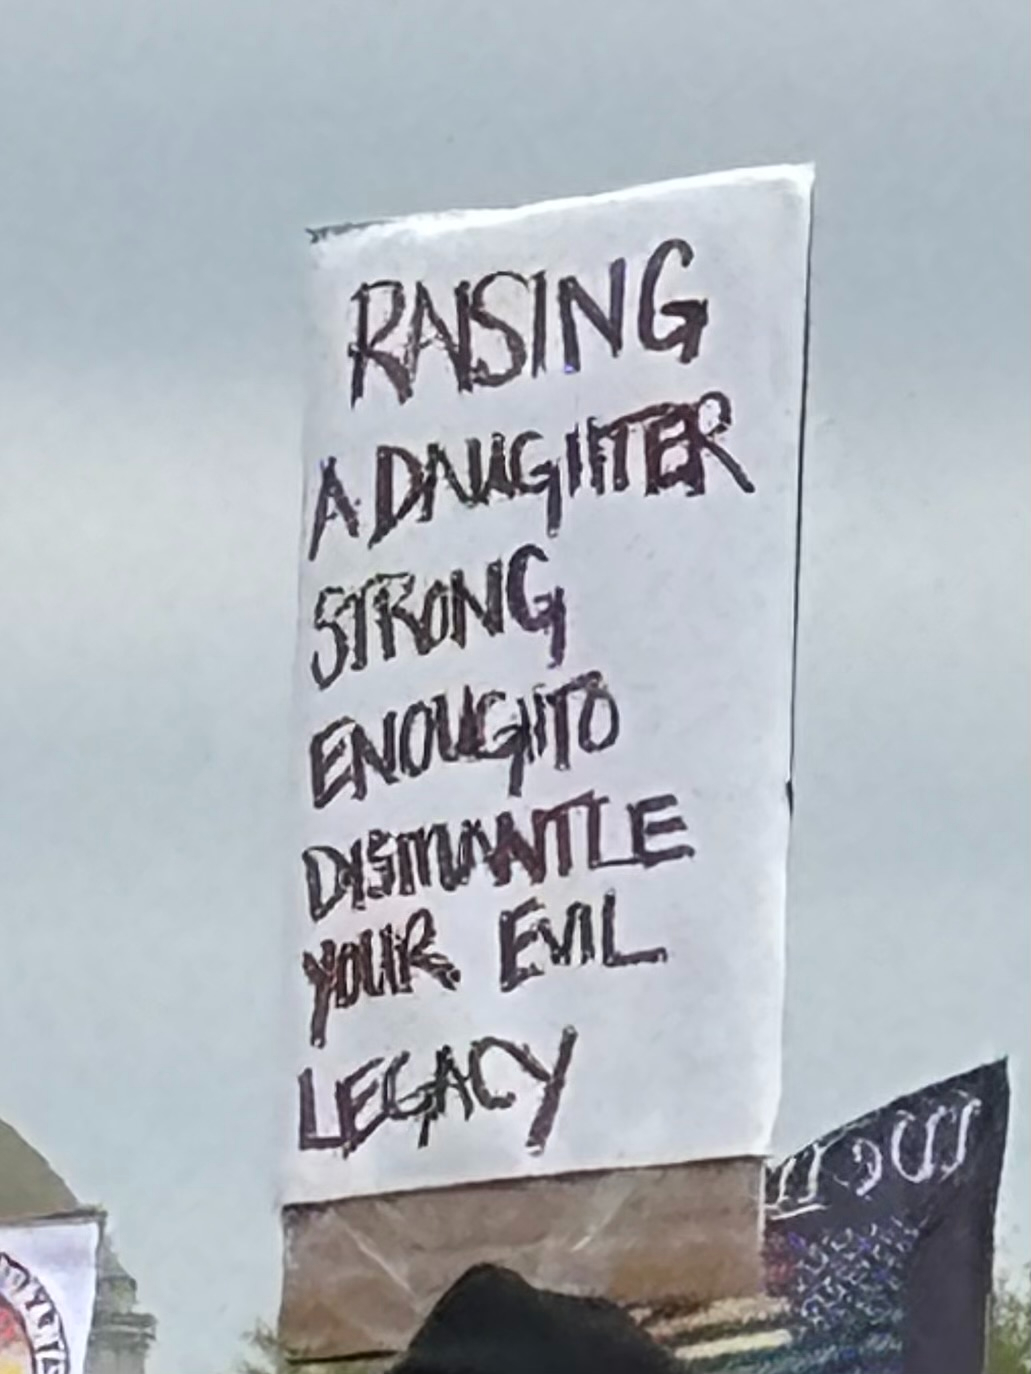 RAISING
A DAUGHTER
STRONG
ENOUGH TO
DISMANTLE
YOUR EVIL
LEGACY